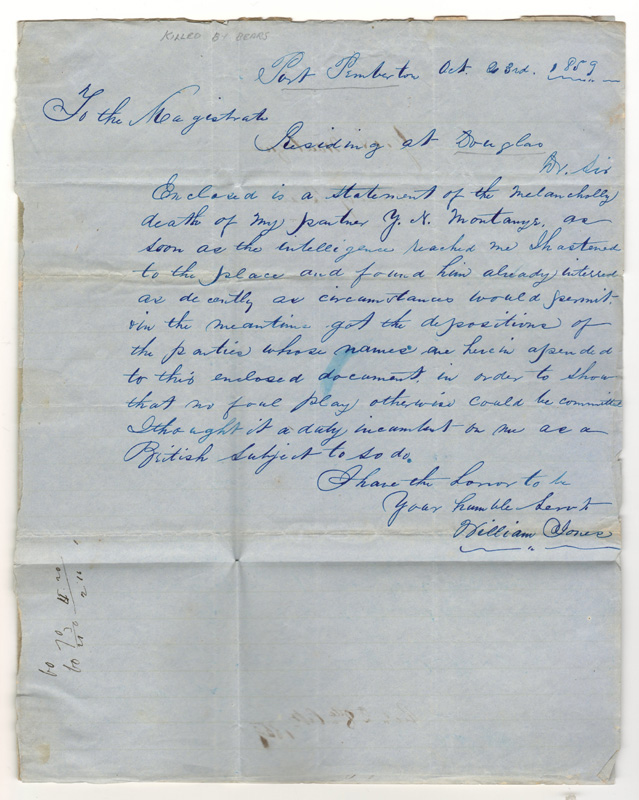 KILLED BY BEARS
Port Pemberton Oct. 23rd. 1859
To the Magistrate
Residing at Douglas
Dr. Sir
Enclosed is a statement of the melancholly
death of my partner Y. N. Montanye. as
soon as the intelligence reached me I hastened
to the place and found him already interred
as decently as circumstances would permit.
in the meantime got the depositions of
the parties whose names are herein apended
to this enclosed document, in order to show
that no foul play otherwise could be committed
I thought it a duty incumbent on me as a
British subject to so do.
I have the honor to be
Your humble Servt
William Jones